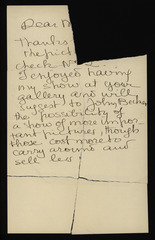 Dear M
Thanks
the pict
check N
I enjoyed having
my show at your
gallery and will
suggest to John Becker
the possibility of
a show of more impor
tant pictures, though
those cost more to
carry around and
sell less